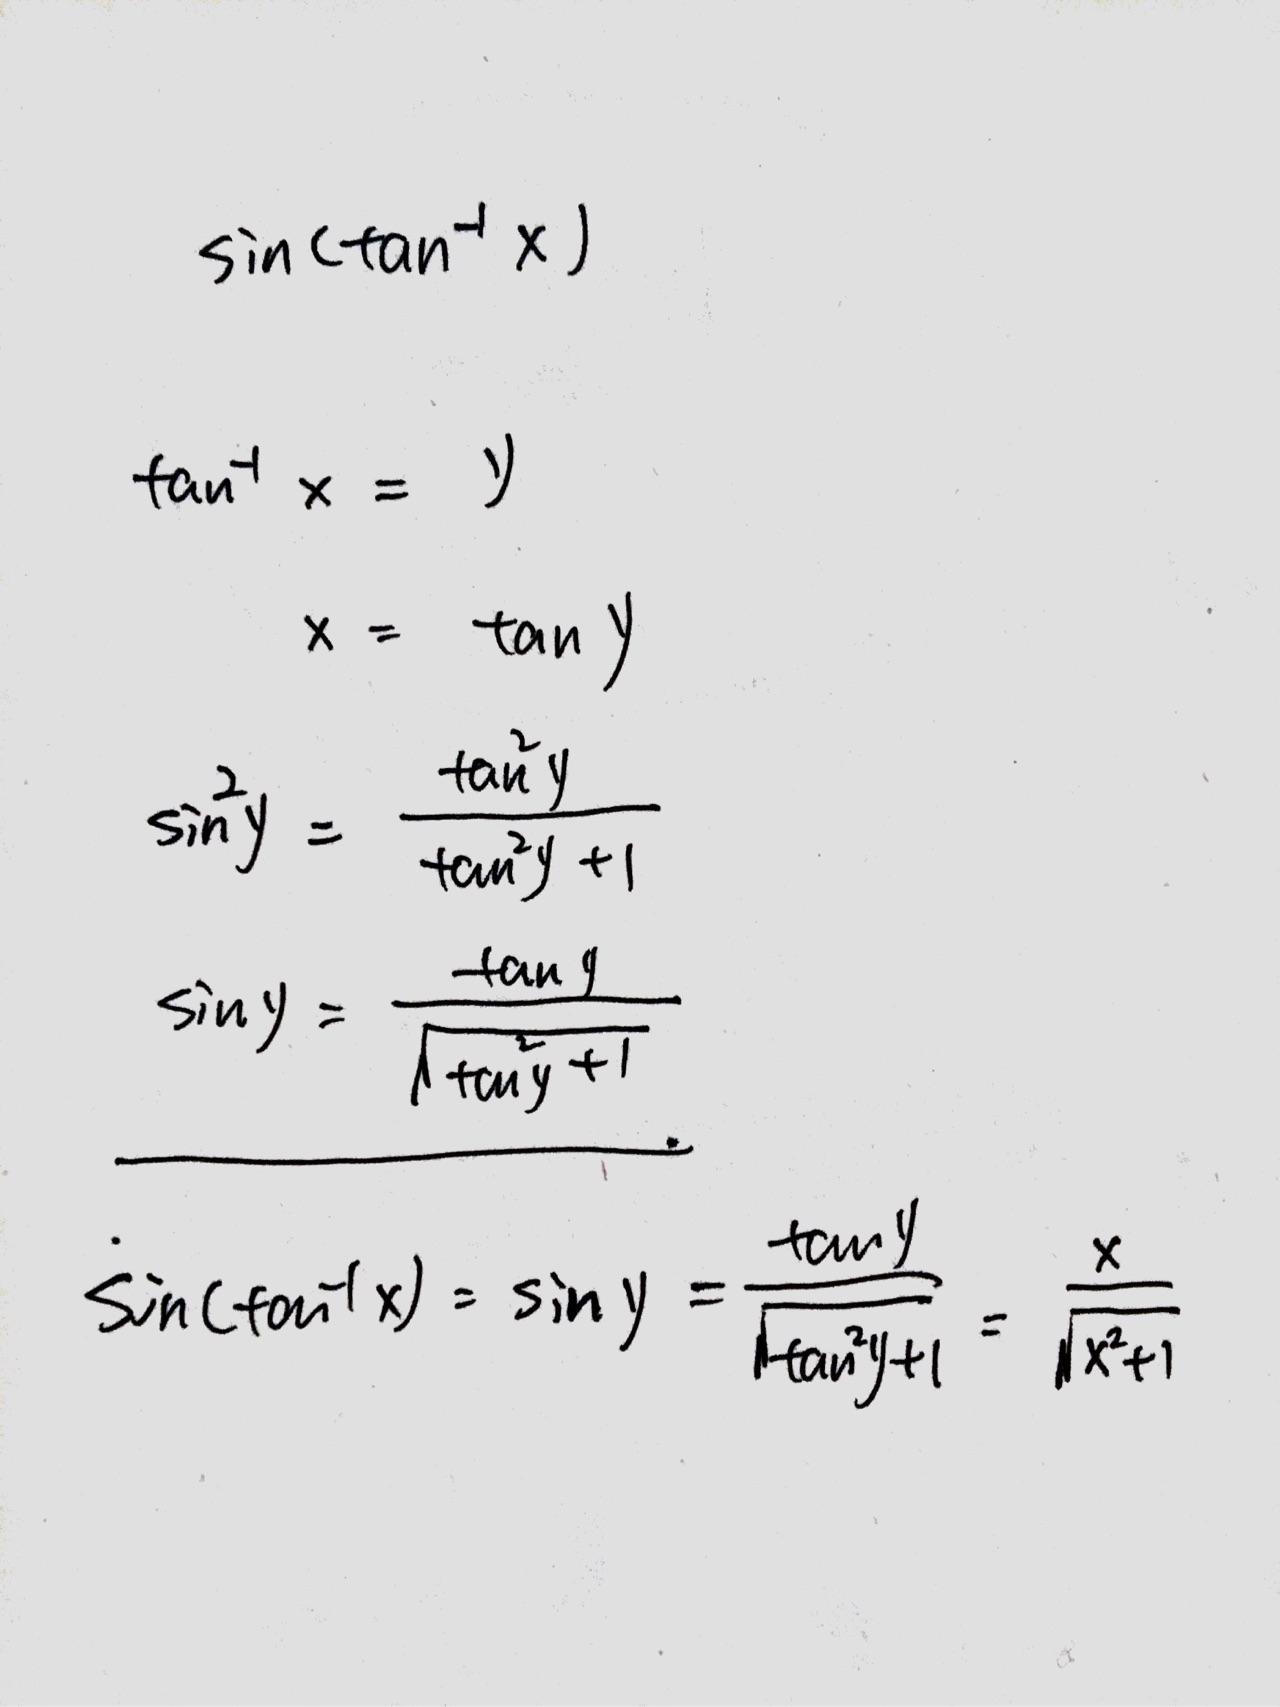 sin(tan⁻¹ x)
tan⁻¹ x = y
x = tan y
sin²y = tan²y / (tan²y + 1)
sin y = tan y / √(tan²y + 1)
sin(tan⁻¹ x) = sin y = tan y / √(tan²y + 1) = x / √(x² + 1)